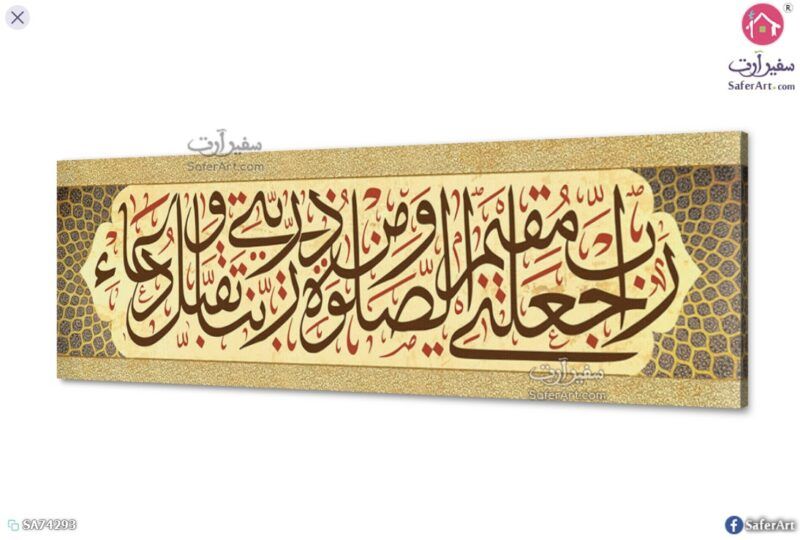 ®
سفير آرت
SaferArt.com
سفير آرت
SaferArt.com
رَبِّ اجْعَلْنِي مُقِيمَ الصَّلَوةِ وَمِنْ ذُرِّيَّتِي رَبَّنَا وَتَقَبَّلْ دُعَاءِ
سفير آرت
SaferArt.com
SA74293
SaferArt